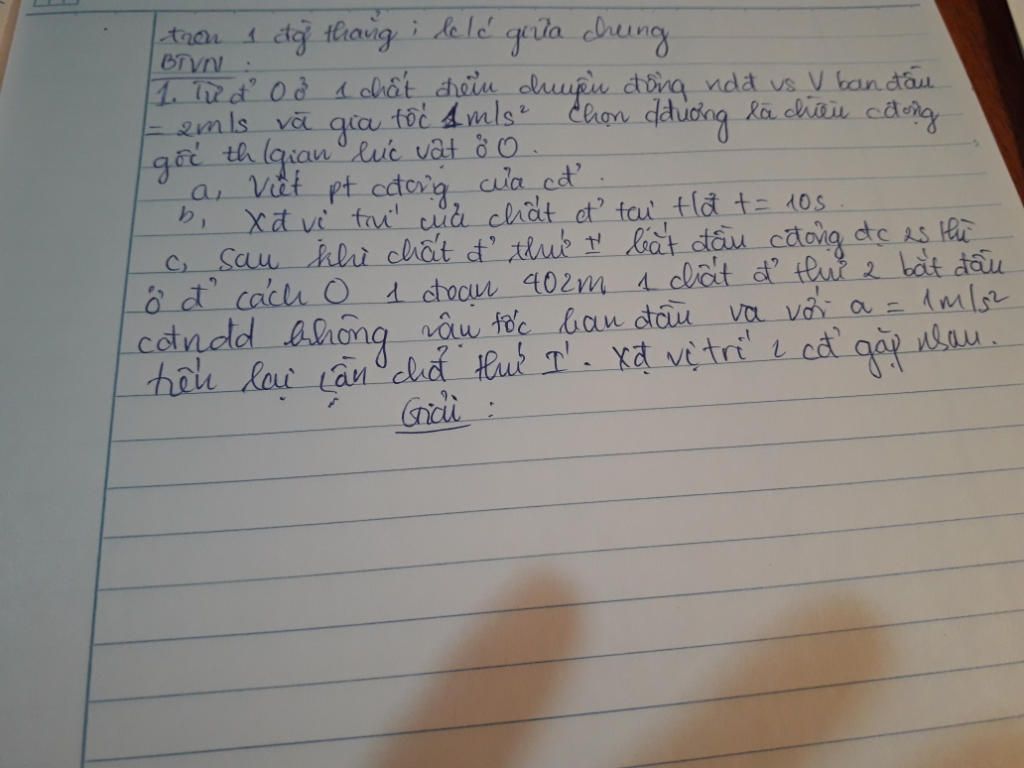 trên 1 đg thẳng ; k/c giữa chung
BTVN :
1. Từ đ' O ở 1 chất điểm chuyển động ndđ vs V ban đầu
= 2m/s và gia tốc 1m/s² Chọn chiều là chiều cđộng
gốc th/gian lúc vật ở O.
a, Viết pt cđộng của cđ'.
b, Xđ vị trí của chất đ' tại t = 10s.
c, Sau khi chất đ' thứ I bắt đầu cđộng đc 2s thì
ở đ' cách O 1 đoạn 402m 1 chất đ' thứ 2 bắt đầu
cđndđ không vận tốc ban đầu và với a = 1m/s²
tiến lại gần chđ' thứ I. Xđ vị trí 2 cđ' gặp nhau.
Giải :